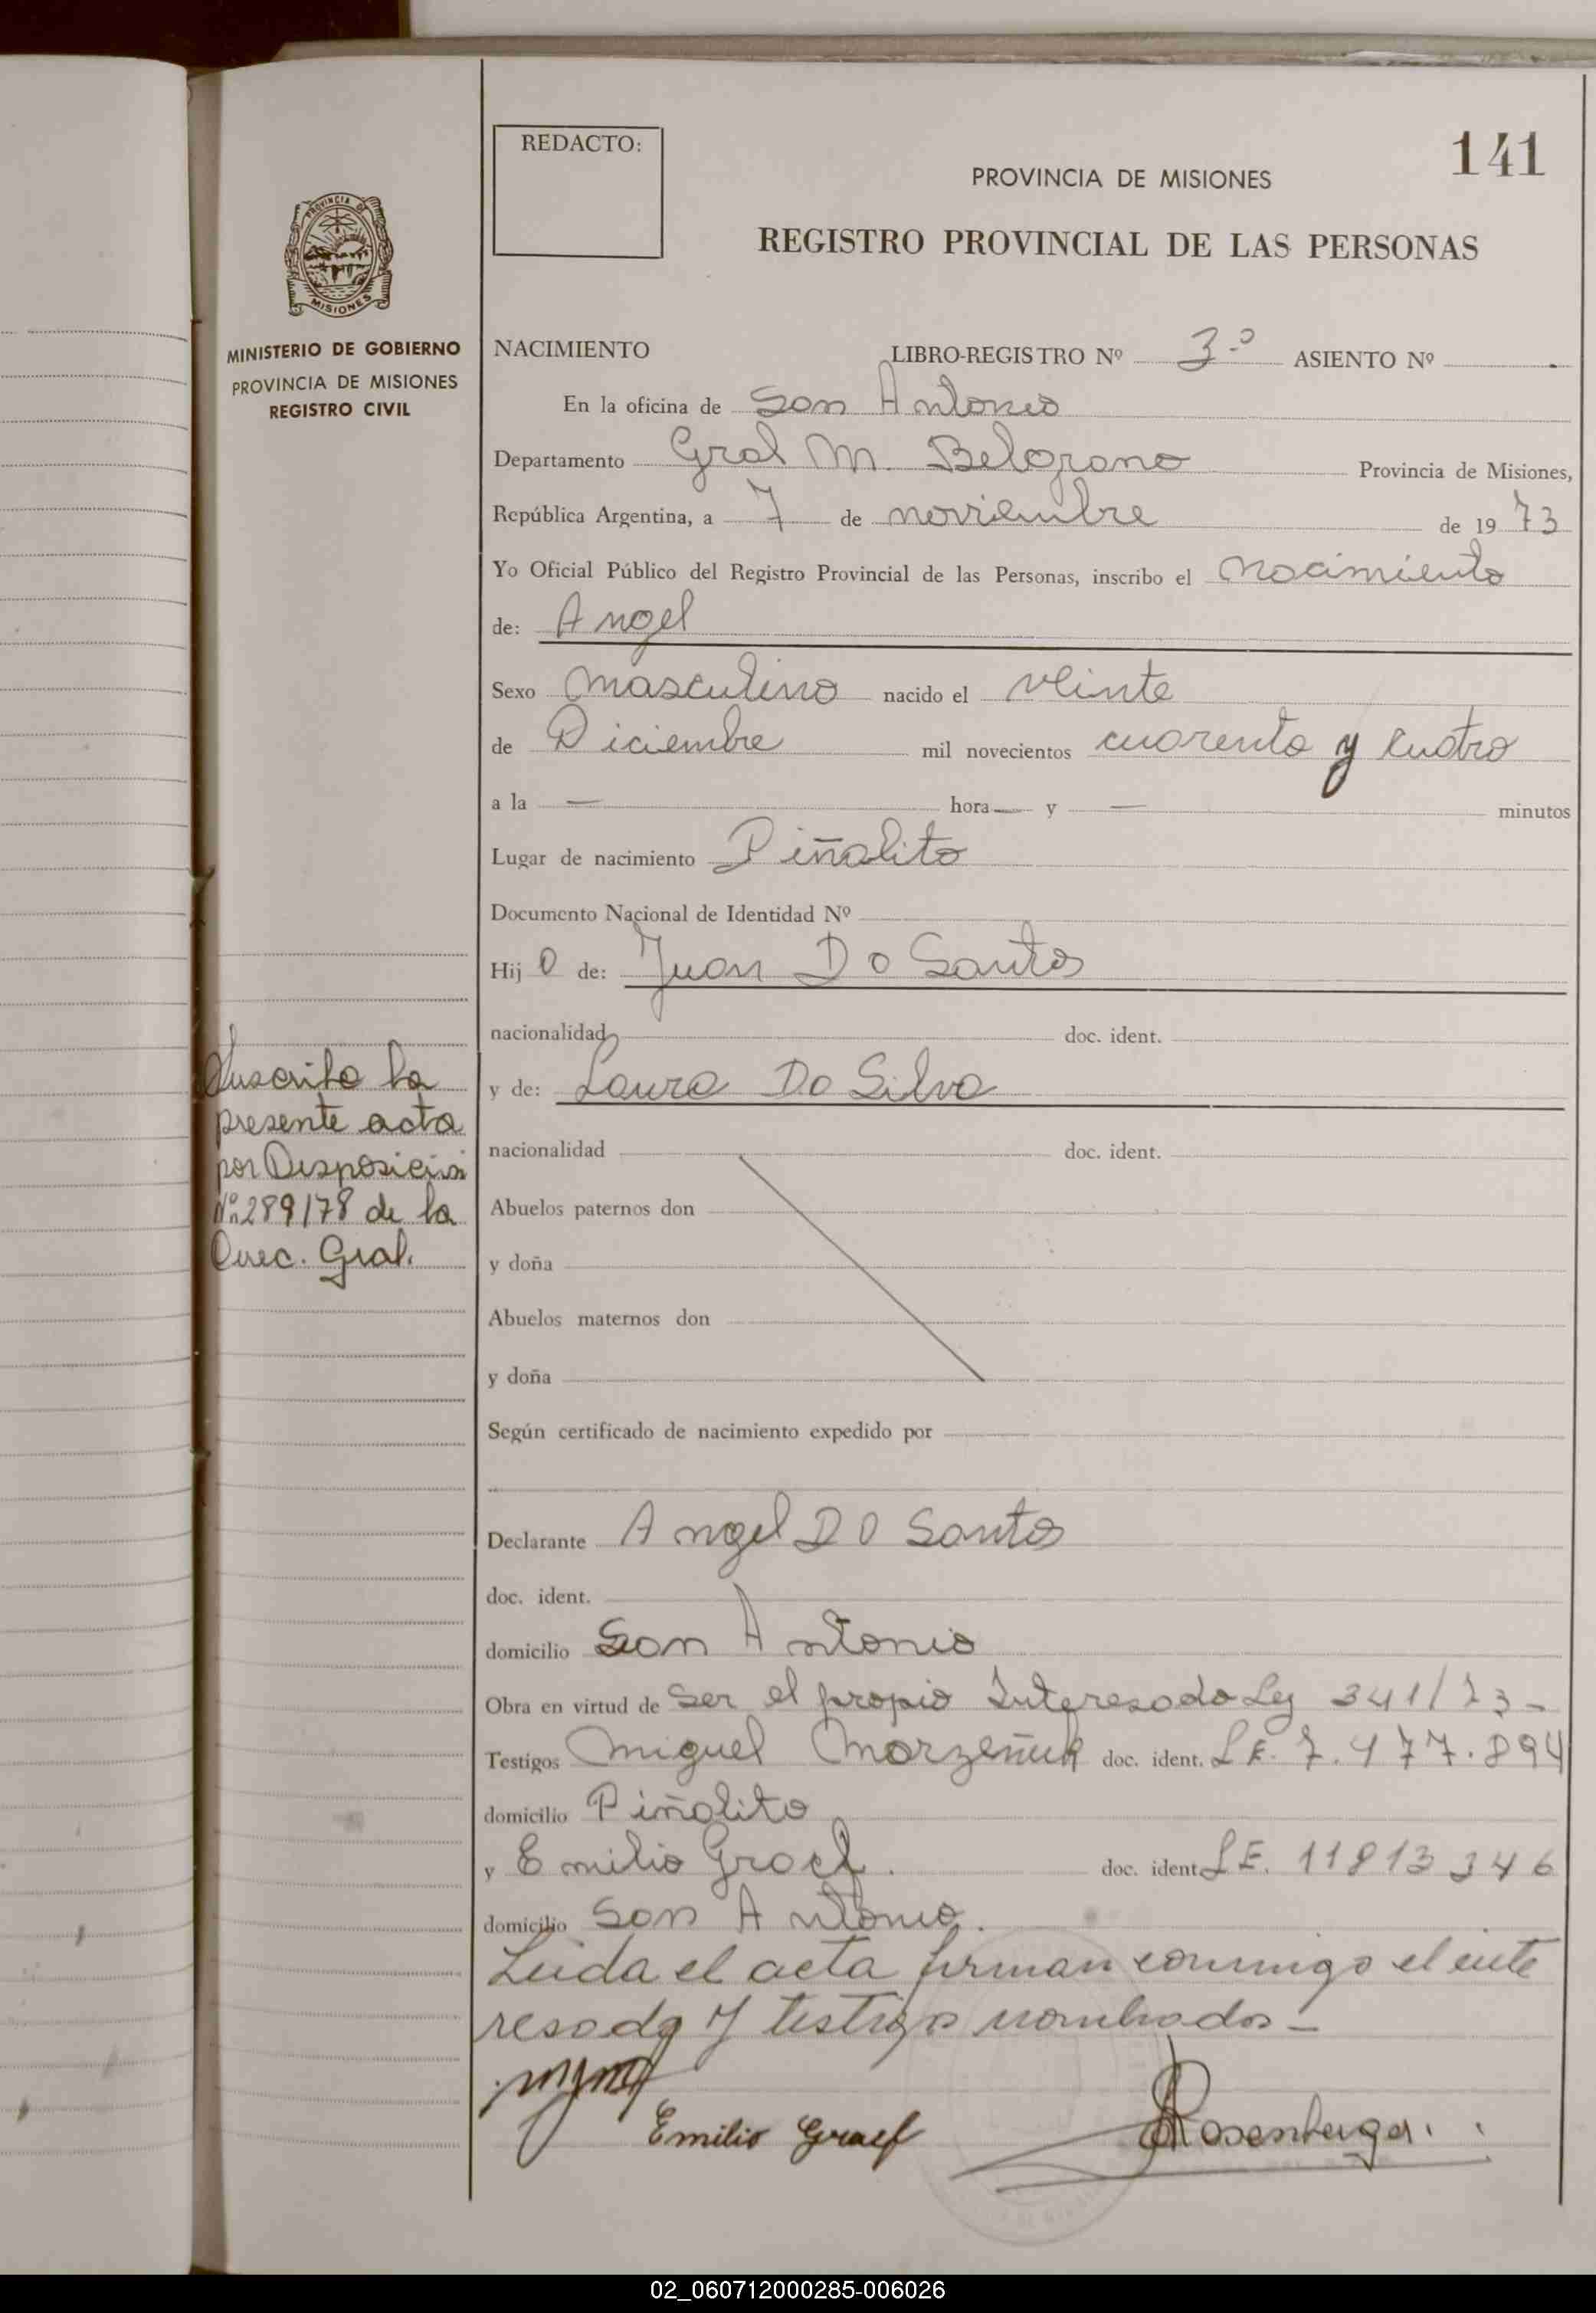 141
REDACTO:
PROVINCIA DE MISIONES
REGISTRO PROVINCIAL DE LAS PERSONAS
PROVINCIA DE
MISIONES
MINISTERIO DE GOBIERNO
PROVINCIA DE MISIONES
REGISTRO CIVIL
NACIMIENTO LIBRO-REGISTRO Nº 3º ASIENTO Nº
En la oficina de San Antonio
Departamento Gral M. Belgrano Provincia de Misiones,
República Argentina, a 7 de noviembre de 19 73
Yo Oficial Público del Registro Provincial de las Personas, inscribo el Nacimiento
de: Angel
Sexo masculino nacido el veinte
de Diciembre mil novecientos cuarenta y cuatro
a la — hora — y — minutos
Lugar de nacimiento Piñalito
Documento Nacional de Identidad Nº
Hij o de: Juan Do Santos
nacionalidad doc. ident.
y de: Laura Do Silva
nacionalidad doc. ident.
Abuelos paternos don
y doña
Abuelos maternos don
y doña
Según certificado de nacimiento expedido por
Declarante Angel DO Santos
doc. ident.
domicilio San Antonio
Obra en virtud de ser el propio Interesado Ley 341/73-
Testigos Miguel doc. ident. L.E. 7.477.894
domicilio Piñalito
y Emilio Graef. doc. ident. L.E. 11813346
domicilio San Antonio.
Leida el acta firman conmigo el inte
resado y testigos nombrados -
Emilio Graef
Rosenberger
Inscrita la
presente acta
por Disposición
Nº 289/78 de la
Direc. Gral.
02_060712000285-006026